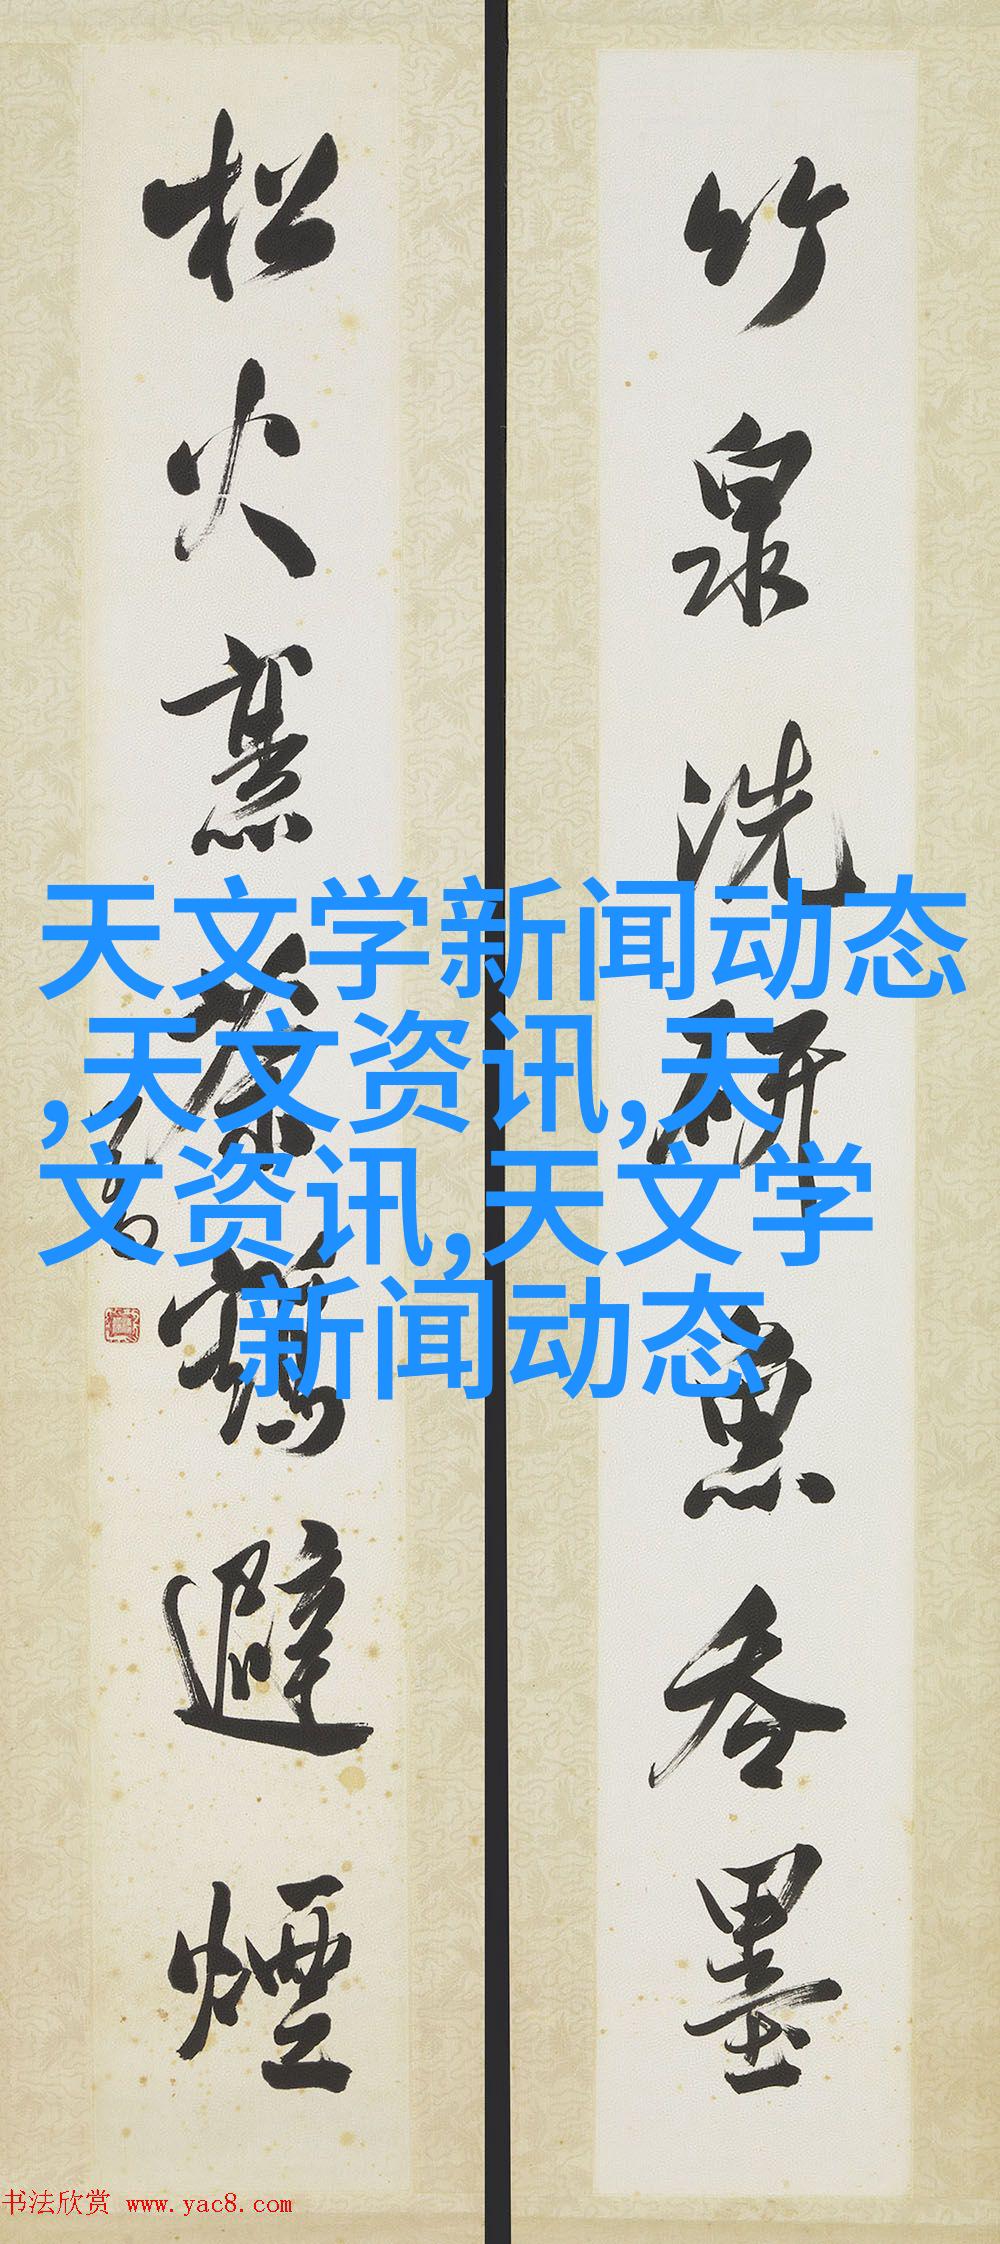 竹泉洗研魚吞墨
松火烹茶鶴避煙
天文学新闻动态
,天文资讯,天
文资讯,天文学
新闻动态
书法欣赏 www.yac8.com